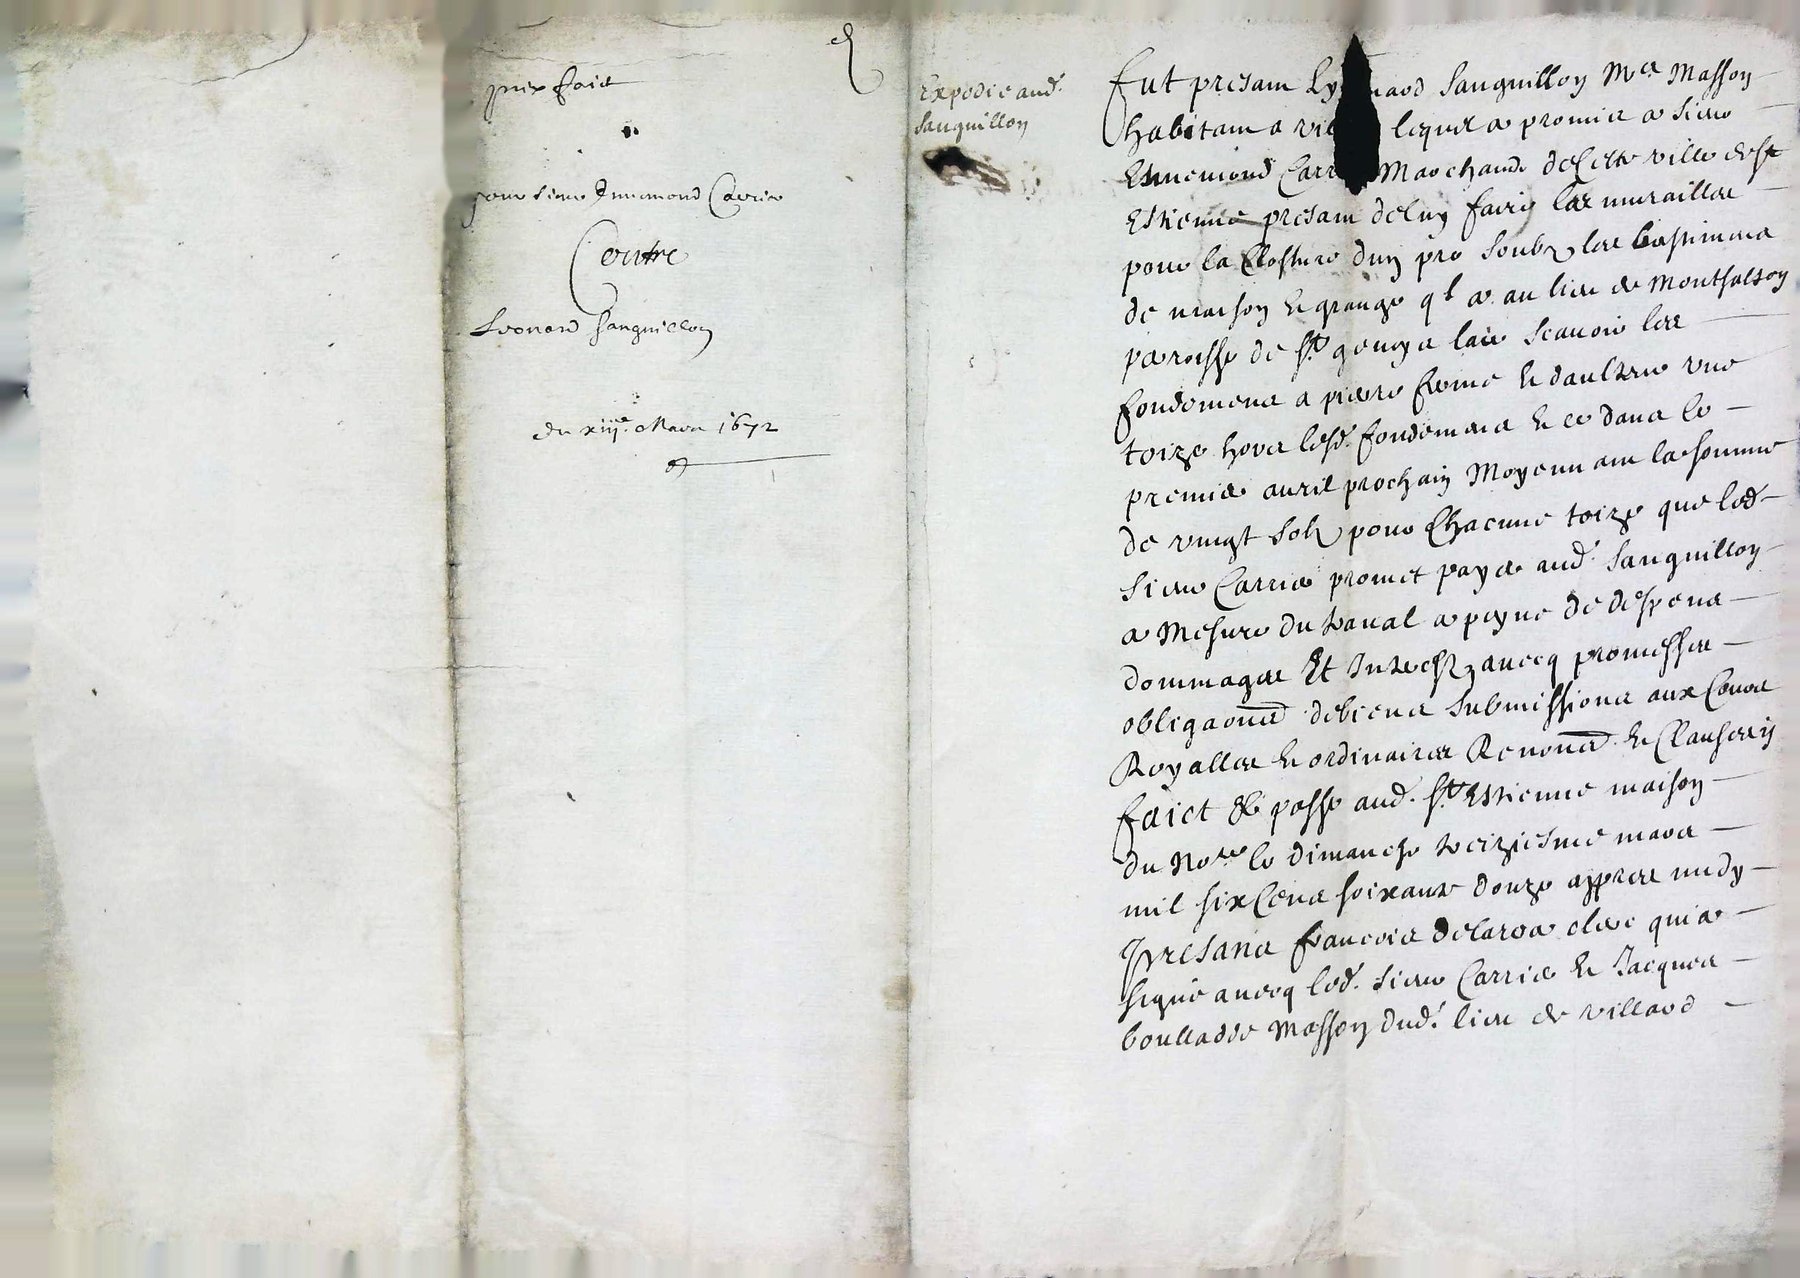 prix faict
pour sieur Ennemond Carrier
Contre
Leonard Sanguillon
du xiije. Mars 1672
Expedie aud.
Sanguillon
Fut presant Ly nard Sanguillon Mer. Masson
habitant a vil lequel a promis a sieur
Ennemond Carr Marchand de cette ville de St
Estienne presant de luy faire les murailles
pour la Closture dun pre soubz les bastimens
de maison et grange ql a au lieu de Montsalson
parroisse de St. genys lair scavoir les
fondemens a pierre ferme et daulteur une
toize hors lesd. fondemens et ce dans le
premier avril prochain Moyennant la somme
de vingt solz pour Chacune toize que led.
Sieur Carrier promet payer aud. Sanguillon
a Mesure du travail a peyne de despens
dommages Et Interestz avecq promesses
obligaons de biens submissions aux Cours
Royalles et ordinaires Renons. et Clauses ij
faict & passe aud. St. Estienne maison
du Nore. le dimanche treiziesme mars
mil six Cens soixante douze appres midy
Presans francois clerc qui a
signe avecq led. sieur Carrier et Jacques
boullade Masson dud. lieu de villard